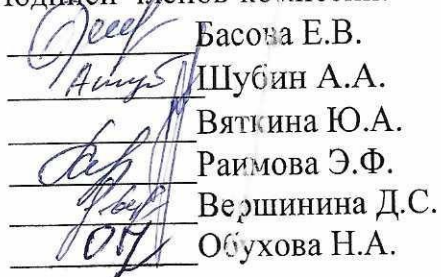 членов
Басова Е.В.
Шубин А.А.
Вяткина Ю.А.
Раимова Э.Ф.
Вершинина Д.С.
Обухова Н.А.